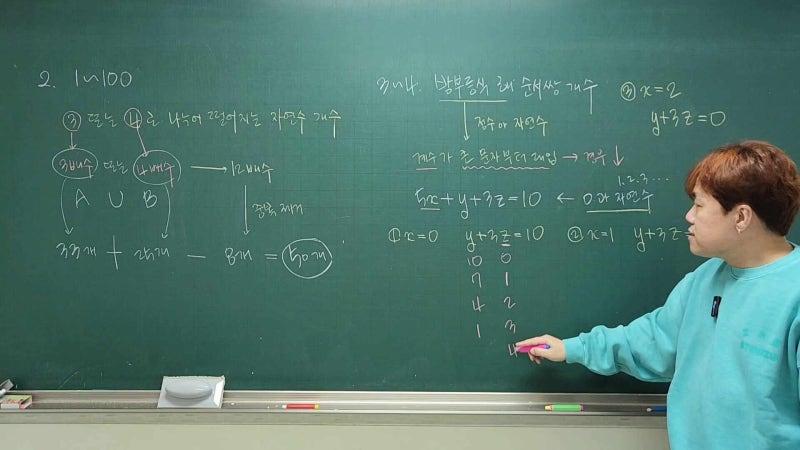 2. 1~100
③ 또는 ④로 나누어 떨어지는 자연수 개수
3배수 또는 4배수 → 12배수
A ∪ B
중복 제거
33개 + 25개 - 8개 = 50개
3~4. 방부등식 해 순서쌍 개수
정수 or 자연수
계수가 큰 문자부터 대입 → 경우 ↓
1. 2. 3 ...
5x+y+3z=10 ← 0과 자연수
① x=0 y+3z=10
10 0
7 1
4 2
1 3
4
② x=1 y+3z=
③ x=2
y+3z=0